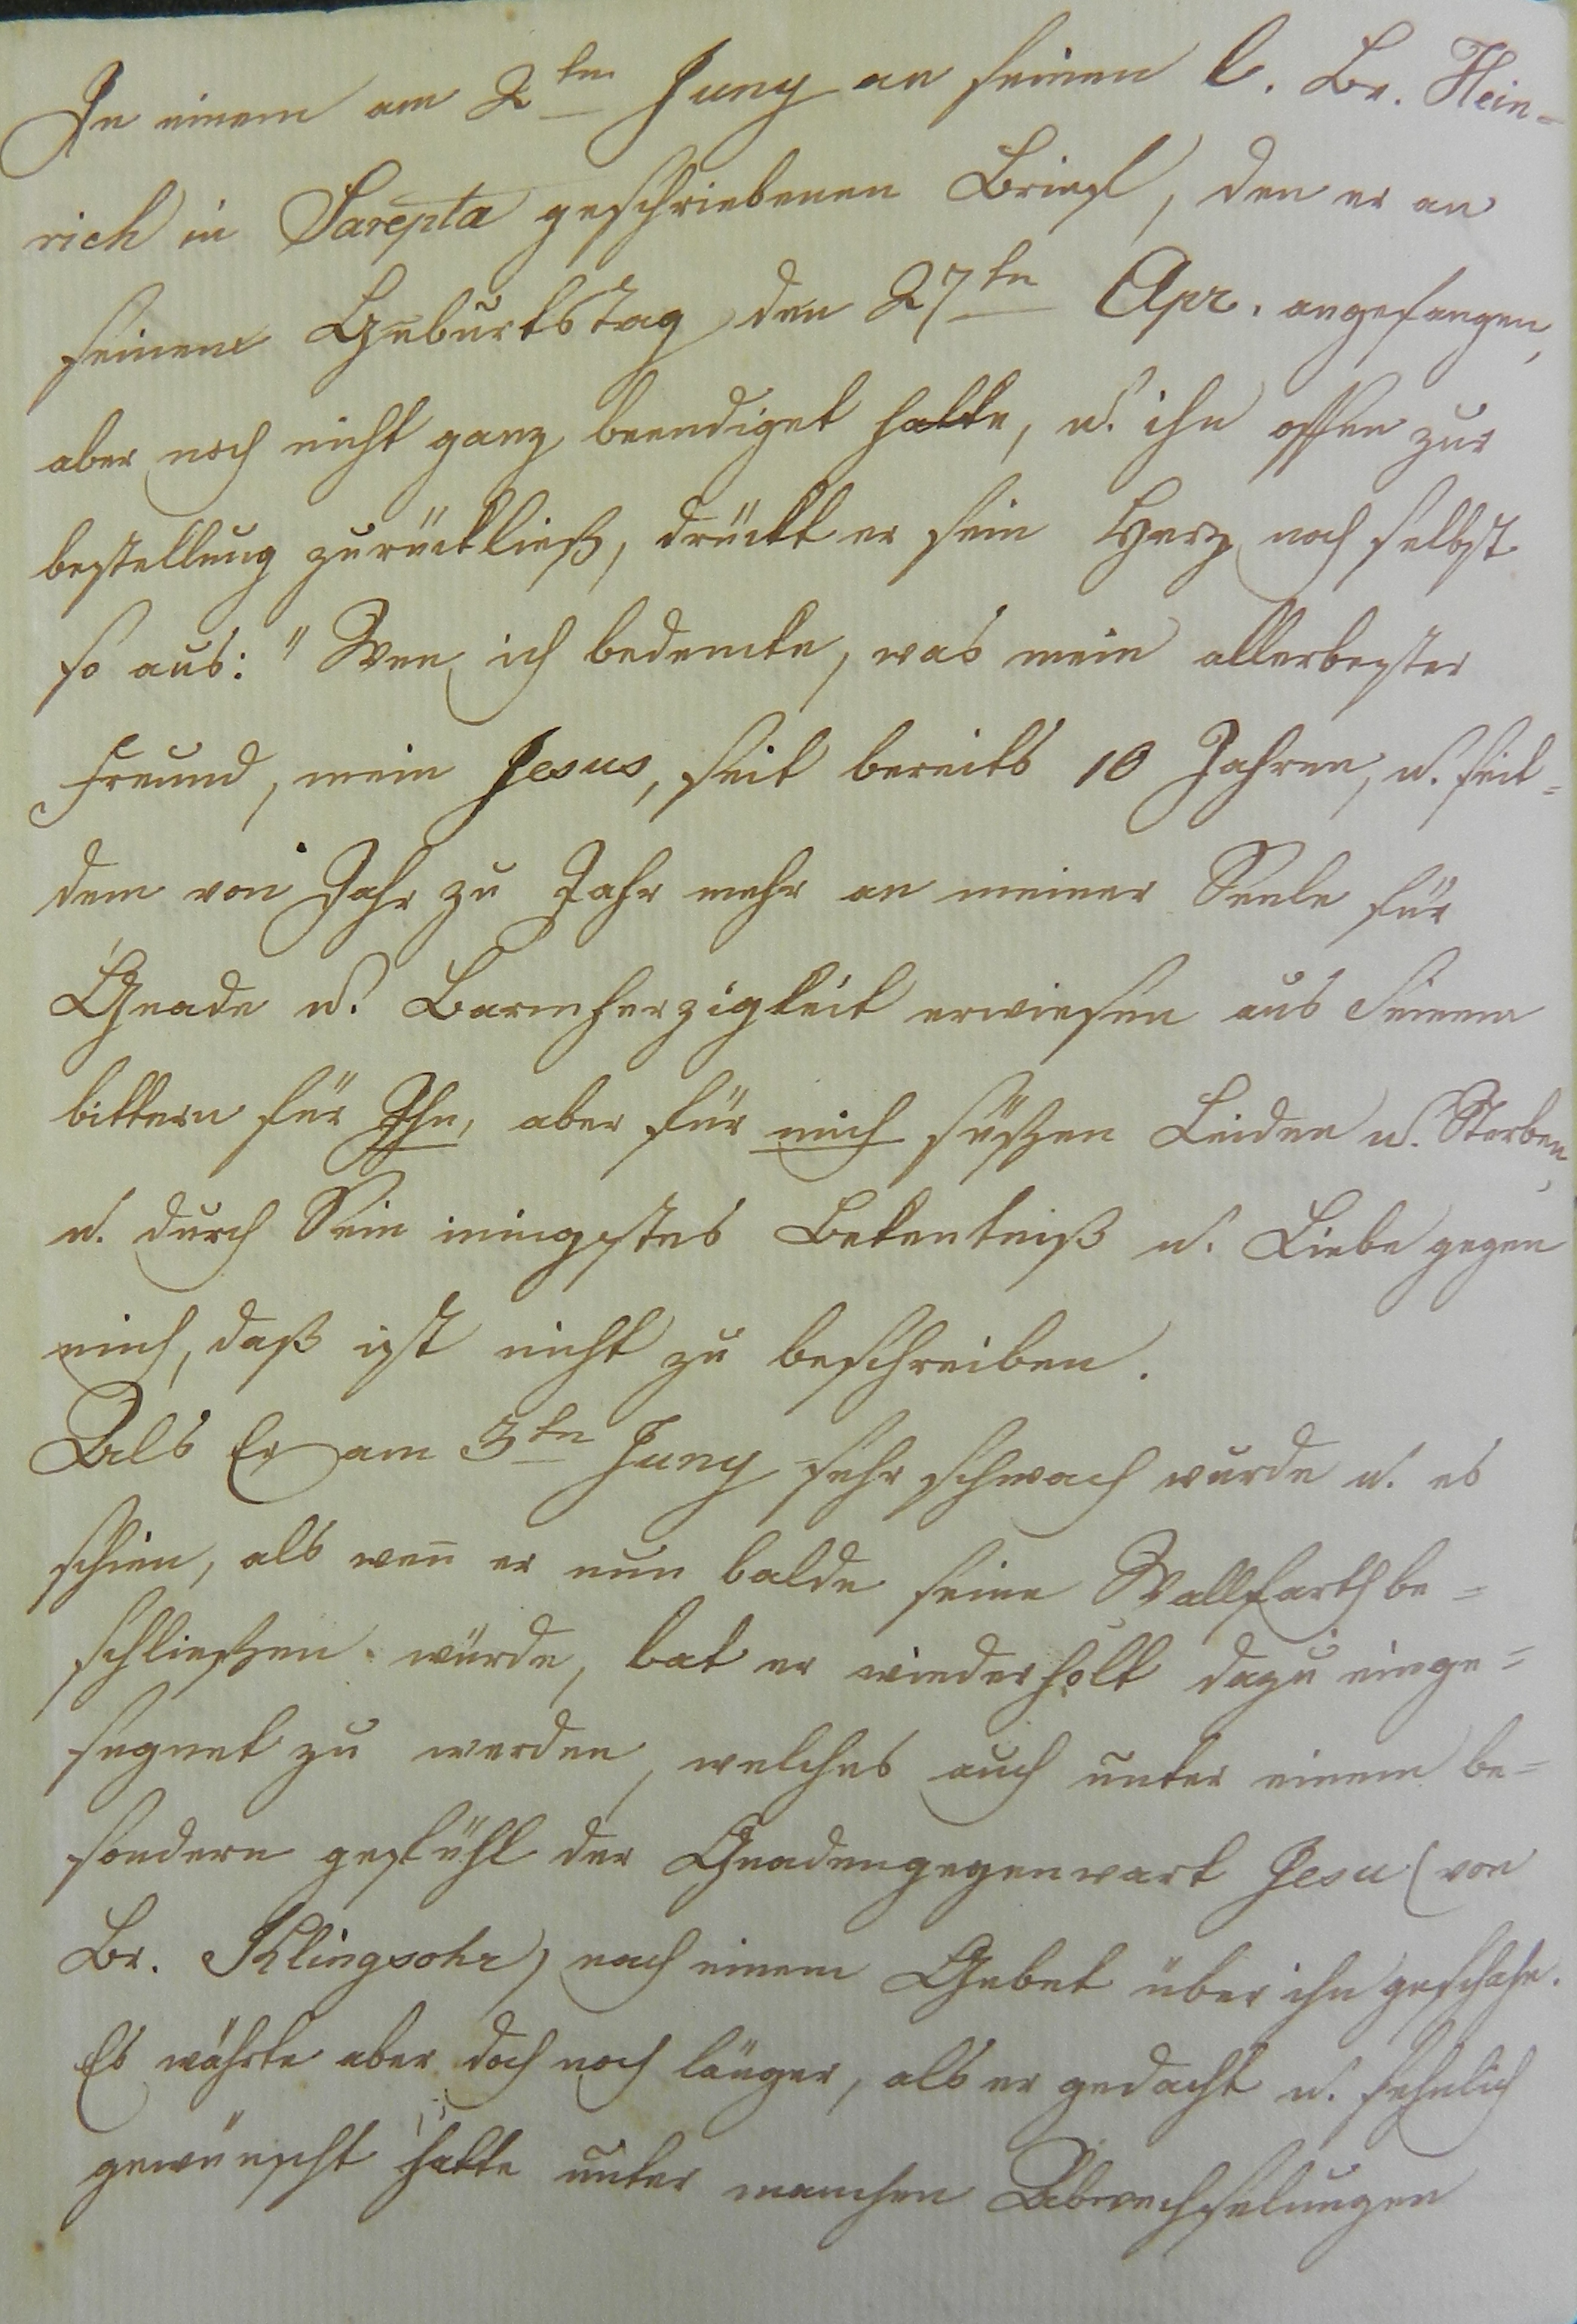 In einem am 2ten Juny an seinen l. Br. Hein-
rich in Sarepta geschriebenen Brief, den er an
seinem Geburtstag den 27ten Apr. angefangen,
aber noch nicht ganz beendiget hatte, u. ihn offen zur
bestellung zurückließ, drückt er sein Herz noch selbst
so aus: "Wen ich bedencke, was mein allerbester
Freund, mein Jesus, seit bereits 10 Jahren, u. seit=
dem von Jahr zu Jahr mehr an meiner Seele für
Gnade u. Barmherzigkeit erwiesen aus Seinem
bittern für Ihn, aber für mich süßen Leiden u. Sterben,
u. durch Sein innigstes Bekentniß u. Liebe gegen
mich, daß ist nicht zu beschreiben.
Als Er am 3ten Juny sehr schwach wurde u. es
schien, als wen̄ er nun balde seine Wallfarth be=
schließen würde, bat er wiederholt dazu einge=
segnet zu werden, welches auch unter einem be=
sondern gefühl der Gnadengegenwart Jesu (von
Br. Klingsohr) nach einem Gebet über ihn geschahe.
Es währte aber doch noch länger, als er gedacht u. sehnlich
gewünscht hatte unter manchen Abwechselungen